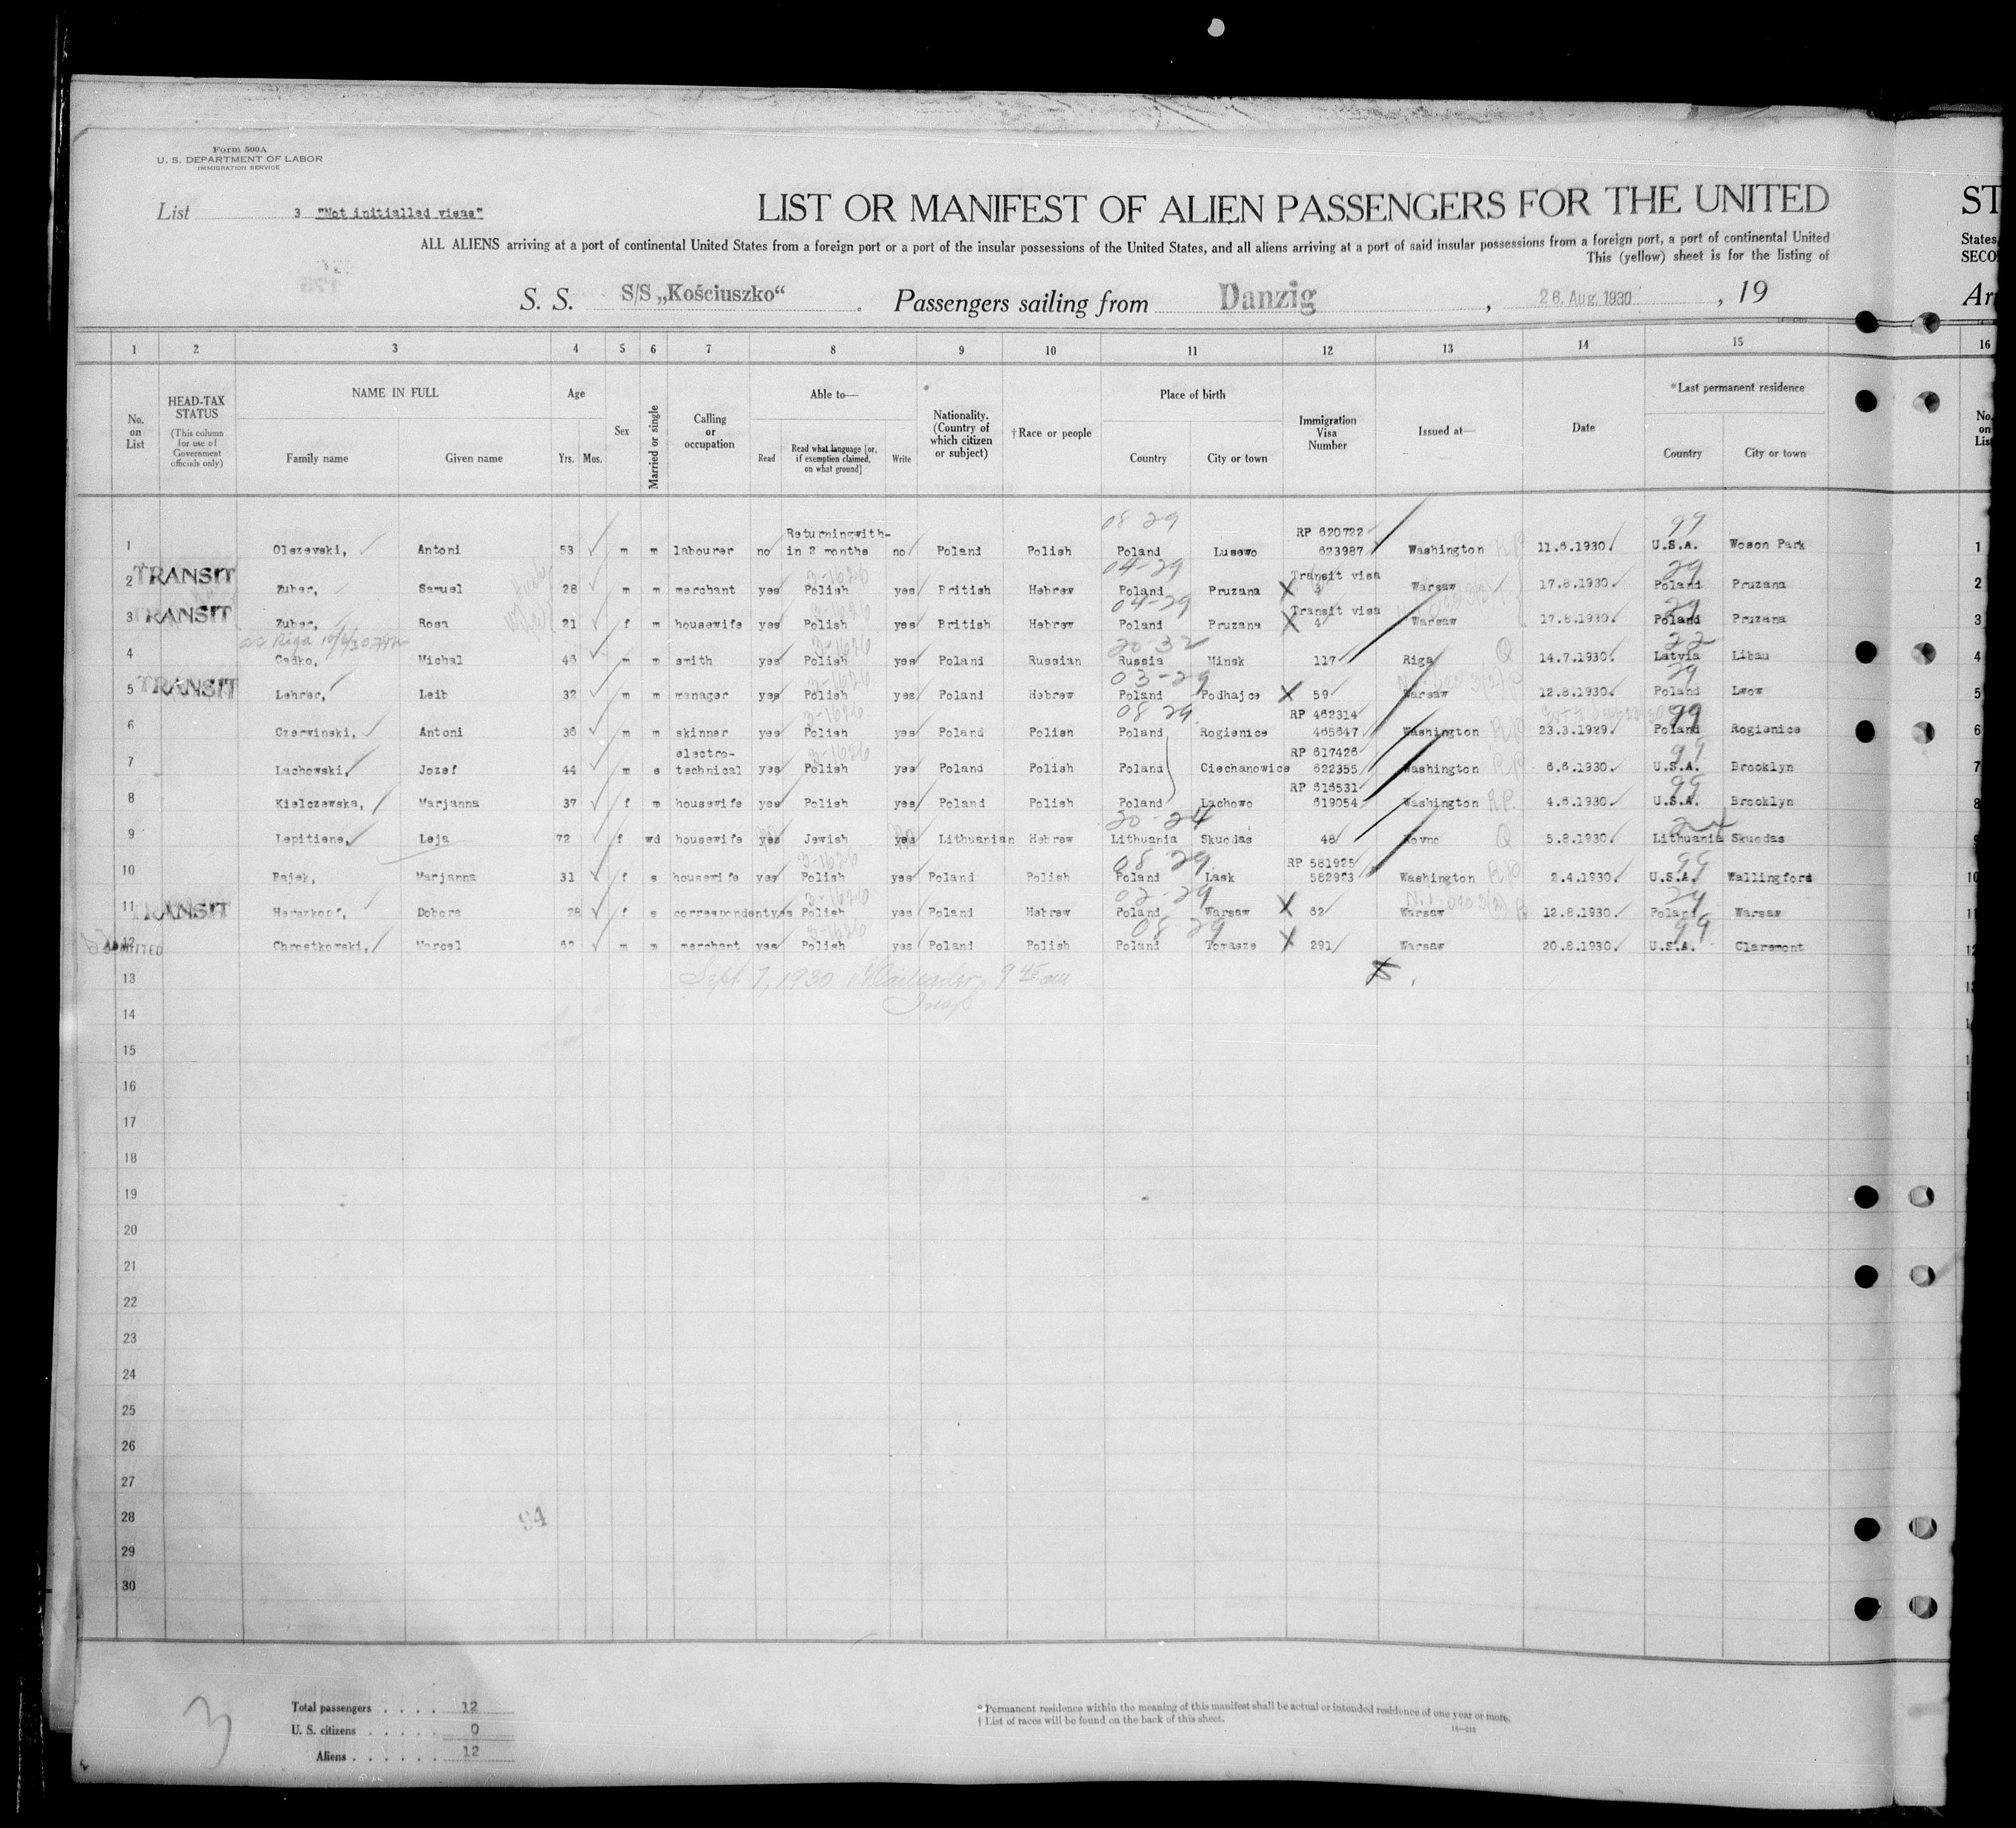 Form 500A
U. S. DEPARTMENT OF LABOR
IMMIGRATION SERVICE
List 3 "Not initialled visas"
LIST OR MANIFEST OF ALIEN PASSENGERS FOR THE UNITED ST
ALL ALIENS arriving at a port of continental United States from a foreign port or a port of the insular possessions of the United States, and all aliens arriving at a port of said insular possessions from a foreign port, a port of continental United States,
This (yellow) sheet is for the listing of SECO
S. S. S/S „Kościuszko“ Passengers sailing from Danzig, 26. Aug. 1930, 19 Ar
1 2 3 4 5 6 7 8 9 10 11 12 13 14 15 16
No. on List
HEAD-TAX STATUS
(This column for use of Government officials only)
NAME IN FULL
Family name Given name
Age
Yrs. Mos.
Sex
Married or single
Calling or occupation
Able to—
Read
Read what language [or, if exemption claimed, on what ground]
Write
* Nationality. (Country of which citizen or subject)
† Race or people
Place of birth
Country City or town
Immigration Visa Number
Issued at—
Date
* Last permanent residence
Country City or town
No. on List
08 29 99
Returningwith- RP 620722
1 Olszevski, Antoni 53 m m labourer no in 2 months no Poland Polish Poland Lusewo 623987 Washington RP 11.6.1930. U.S.A. Woson Park 1
3-1626 04-29 Transit visa 29
2 TRANSIT Zuber, Samuel 28 m m merchant yes Polish yes British Hebrew Poland Pruzana X 3 Warsaw 17.8.1930. Poland Pruzana 2
3-1626 04-29 Transit visa 29
3 TRANSIT Zuber, Rosa 21 f m housewife yes Polish yes British Hebrew Poland Pruzana X 4 Warsaw 17.8.1930. Poland Pruzana 3
3-1626 20-32 22
4 Cadko, Michal 46 m m smith yes Polish yes Poland Russian Russia Minsk 117 Riga Q 14.7.1930. Latvia Libau 4
3-1626 03-29 29
5 TRANSIT Lehrer, Leib 32 m m manager yes Polish yes Poland Hebrew Poland Podhajce X 59 Warsaw 12.8.1930. Poland Lwow 5
3-1626 08 29 RP 462314 99
6 Czervinski, Antoni 36 m m skinner yes Polish yes Poland Polish Poland Rogienice 465647 Washington RP 23.3.1929. Poland Rogienice 6
electro- 3-1626 RP 617426 99
7 Lachowski, Jozef 44 m s technical yes Polish yes Poland Polish Poland Ciechanowice 622355 Washington RP 6.6.1930. U.S.A. Brooklyn 7
RP 616531 99
8 Kielczewska, Marjanna 37 f m housewife yes Polish yes Poland Polish Poland Lachowo 619054 Washington RP. 4.6.1930. U.S.A. Brooklyn 8
20-24 24
9 Lepitiene, Leja 72 f wd housewife yes Jewish yes Lithuanian Hebrew Lithuania Skuodas 48 Kovno Q 5.8.1930. Lithuania Skuodas 9
3-1626 08 29 RP 581925 99
10 Bajek, Marjanna 31 f s housewife yes Polish yes Poland Polish Poland Lask 582923 Washington RP 2.4.1930. U.S.A. Wallingford 10
3-1626 02-29 29
11 TRANSIT Herszkopf, Debora 28 f s correspondent yes Polish yes Poland Hebrew Poland Warsaw X 62 Warsaw 12.8.1930. Poland Warsaw 11
3-1626 08-29 99
12 ADMITTED Chrostkowski, Marcel 62 m m merchant yes Polish yes Poland Polish Poland Tomasze X 291 Warsaw 20.8.1930. U.S.A. Claremont 12
13 Sept. 7, 1930 9 45 am
Insp
14
15
16
17
18
19
20
21
22
23
24
25
26
27
28
94
29
30
3
Total passengers . . . . 12
U. S. citizens . . . . . 0
Aliens . . . . . . 12
* Permanent residence within the meaning of this manifest shall be actual or intended residence of one year or more.
† List of races will be found on the back of this sheet.